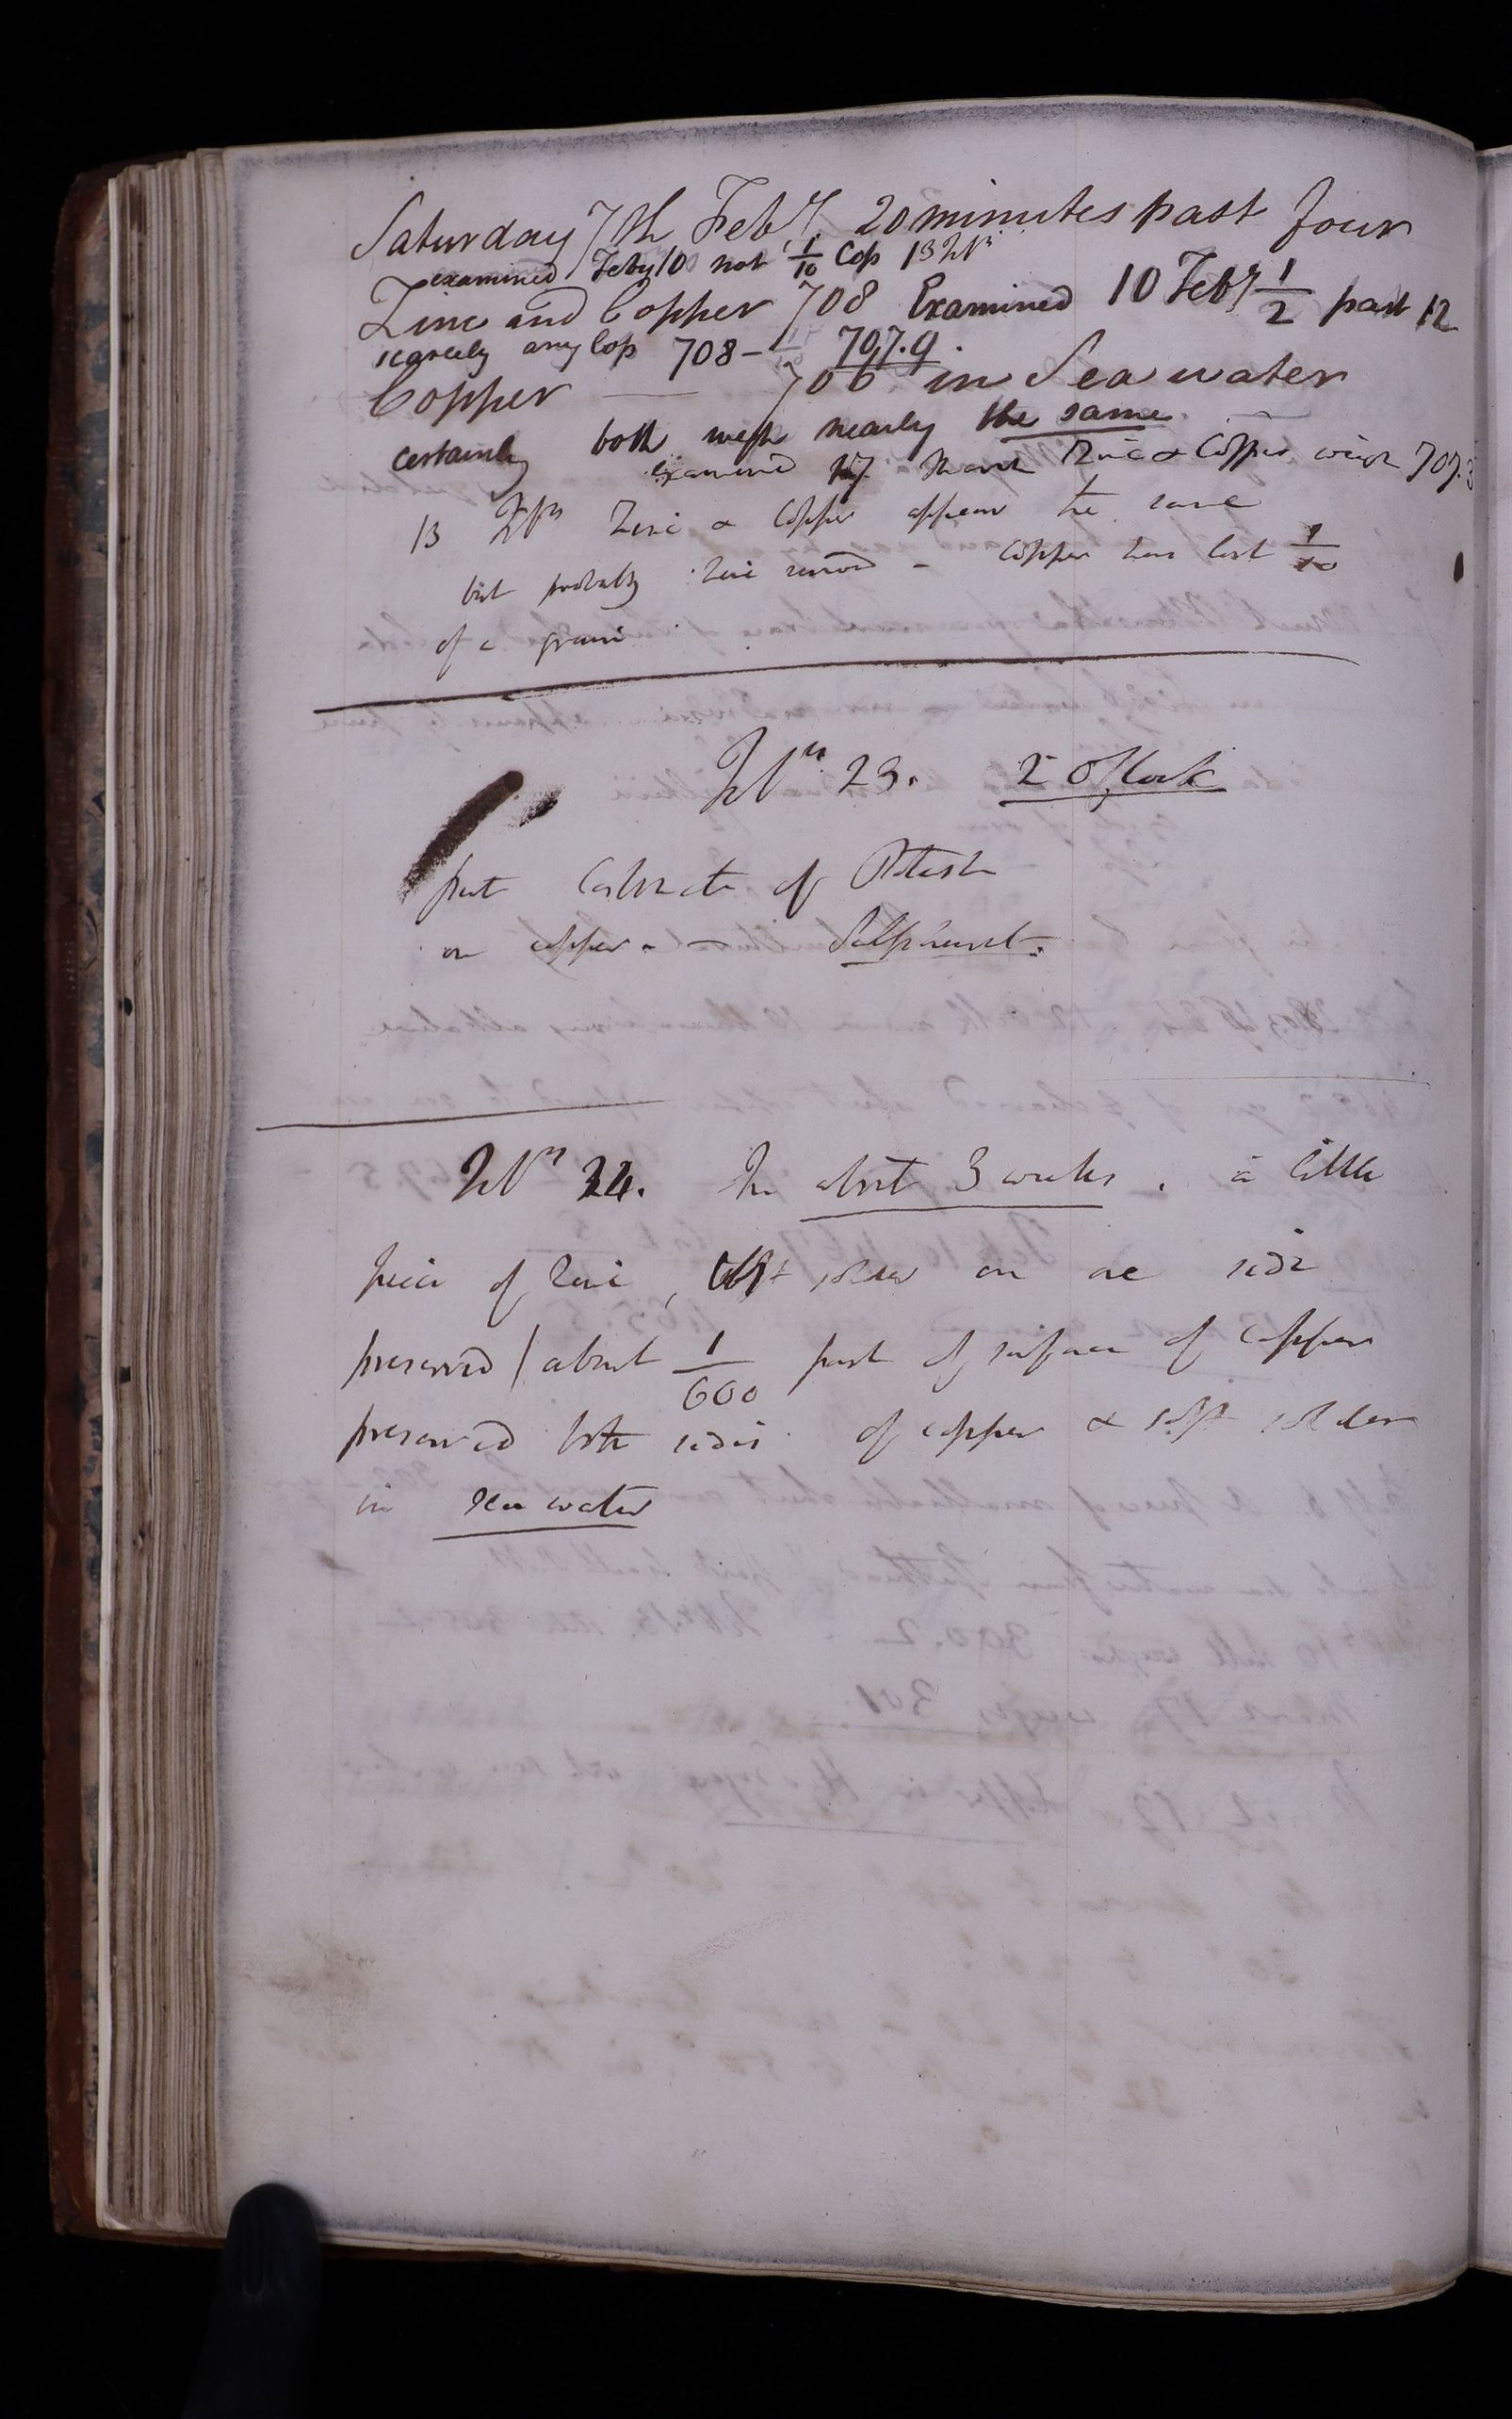 Saturday 7th Feby. 20 minutes past four
examined Feby 10 not 1/10 Cop 13
Zinc and Copper 708 Examined 10 Feby 1/2 past 12
scarcely any Cop 708 - 707.9.
Copper — 706 in Sea water
certainly both weigh nearly the same
examined 17. March Zinc & Copper weigh 707.3
13 Zinc & Copper appear the same
but probably zinc - Copper has lost 1/10
of a grain
23. 2 O'Clock
put Carbonate of Potash
on copper - — Sulphuret.
24. In about 3 weeks. a little
piece of Zinc, soft solder on one side
preserved / about 1/600 part of surface of copper
preserved both sides of copper & soft solder
in sea water